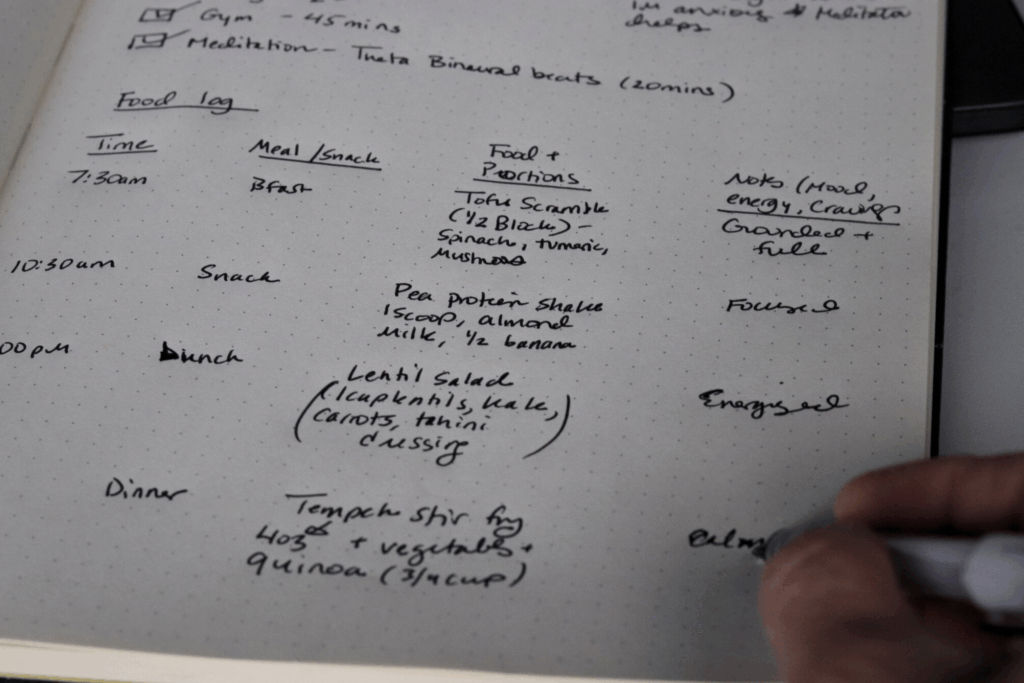 Gym - 45 mins
im anxious
helps
Meditation - Theta Bineural beats (20mins)
Food log
Time
Meal/Snack
Food +
Portions
Notes (Mood,
energy, Cravings
7:30am
Bfast
Tofu Scramble
(1/2 Block) -
Spinach, tumaric,
Grounded +
full
10:30am
Snack
Pea protein shake
1 scoop, almond
Milk, 1/2 banana
Focused
00pm
Lunch
Lentil Salad
(1cup lentils, kale,
carrots, tahini
dressing)
Energised
Dinner
Tempeh stir fry
4oz + vegetables +
quinoa (3/4 cup)
Calm